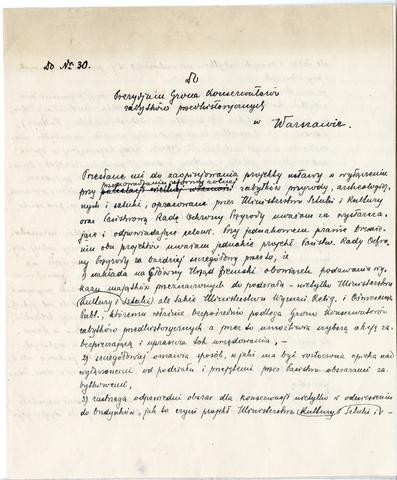 Do Nr. 30.
Do
Prezydium Grona Konserwatorów
zabytków przedhistorycznych
w Warszawie.
Przesłane mi do zaopinjowania projekty ustawy o wyłączeniu
przeprowadzaniu reformy rolnej
przy parcelacji wielkiej własności zabytków przyrody, archeologicz-
nych i sztuki, opracowane przez Ministerstwo Sztuki i Kultury
oraz Państwową Radę Ochrony Przyrody uważam za wystarcza-
jące i odpowiadające celowi. Przy jednakowem prawie brzmie-
niu obu projektów uważam jednakże projekt Państw. Rady Ochro-
ny Przyrody za bardziej szczegółowy przez to, że
1) nakłada na Główny Urząd Ziemski obowiązek podawania wy-
kazu majątków przeznaczonych do podziału - nietylko Ministerstwu
Kultury i Sztuki ale także Ministerstwu Wyznań Relig. i Oświecenia
Publ., któremu właśnie bezpośrednio podlega Grono Konserwatorów
zabytków przedhistorycznych a przez to umożliwia szybszą akcję za-
bezpieczającą i upraszcza tok urzędowania, -
2) szczegółowiej omawia sposób, w jaki ma być roztoczona opieka nad
wyłączonemi od podziału i przejętemi przez Państwo obszarami za-
bytkowemi,
3) zastrzega odpowiedni obszar dla konserwacji nietylko w odniesieniu
do budynków, jak to czyni projekt Ministerstwa Kultury i Sztuki, -